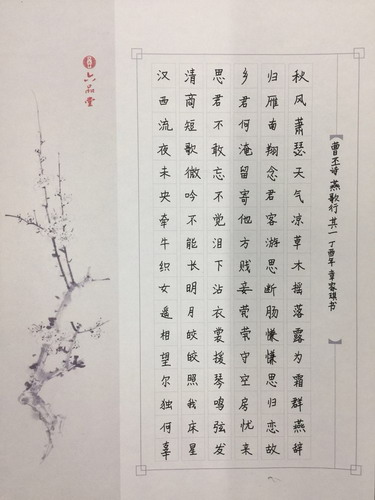 【曹丕诗 燕歌行 其一 丁酉年 章家琪书】
秋风萧瑟天气凉草木摇落露为霜群燕辞
归雁南翔念君客游思断肠慊慊思归恋故
乡君何淹留寄他方贱妾茕茕守空房忧来
思君不敢忘不觉泪下沾衣裳援琴鸣弦发
清商短歌微吟不能长明月皎皎照我床星
汉西流夜未央牵牛织女遥相望尔独何辜
六品堂